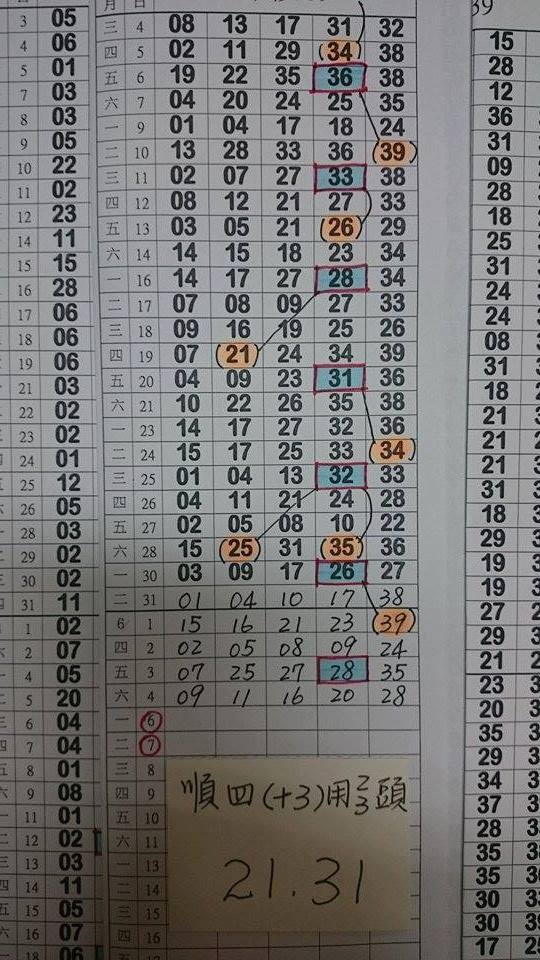 3 05
4 06
5 01
7 03
8 03
9 05
10 22
11 02
12 23
14 11
15 15
16 28
17 06
18 06
19 06
21 03
22 02
23 02
24 01
25 12
26 05
28 03
29 02
30 02
31 11
1 02
2 07
4 05
5 20
6 04
7 04
8 01
9 08
11 01
12 02
13 03
14 11
15 05
16 07
18 06
月 日
三 4 08 13 17 31 32
四 5 02 11 29 (34) 38
五 6 19 22 35 36 38
六 7 04 20 24 25 35
一 9 01 04 17 18 24
二 10 13 28 33 36 (39)
三 11 02 07 27 33 38
四 12 08 12 21 27 33
五 13 03 05 21 (26) 29
六 14 14 15 18 23 34
一 16 14 17 27 28 34
二 17 07 08 09 27 33
三 18 09 16 19 25 26
四 19 07 (21) 24 34 39
五 20 04 09 23 31 36
六 21 10 22 26 35 38
一 23 14 17 27 32 36
二 24 15 17 25 33 (34)
三 25 01 04 13 32 33
四 26 04 11 21 24 28
五 27 02 05 08 10 22
六 28 15 (25) 31 (35) 36
一 30 03 09 17 26 27
二 31 01 04 10 17 38
6 1 15 16 21 23 (39)
四 2 02 05 08 09 24
五 3 07 25 27 28 35
六 4 09 11 16 20 28
一 6
二 7
三 8
四 9
五 10
六 11
一 13
二 14
三 15
四 16
順四(+3)用2 3頭
21.31
39
15
28
12
36
31
09
28
18
25
31
24
24
08
31
18
21
21
21
31
18
29
19
19
27
29
21
23
20
35
29
34
37
28
35
35
30
30
17